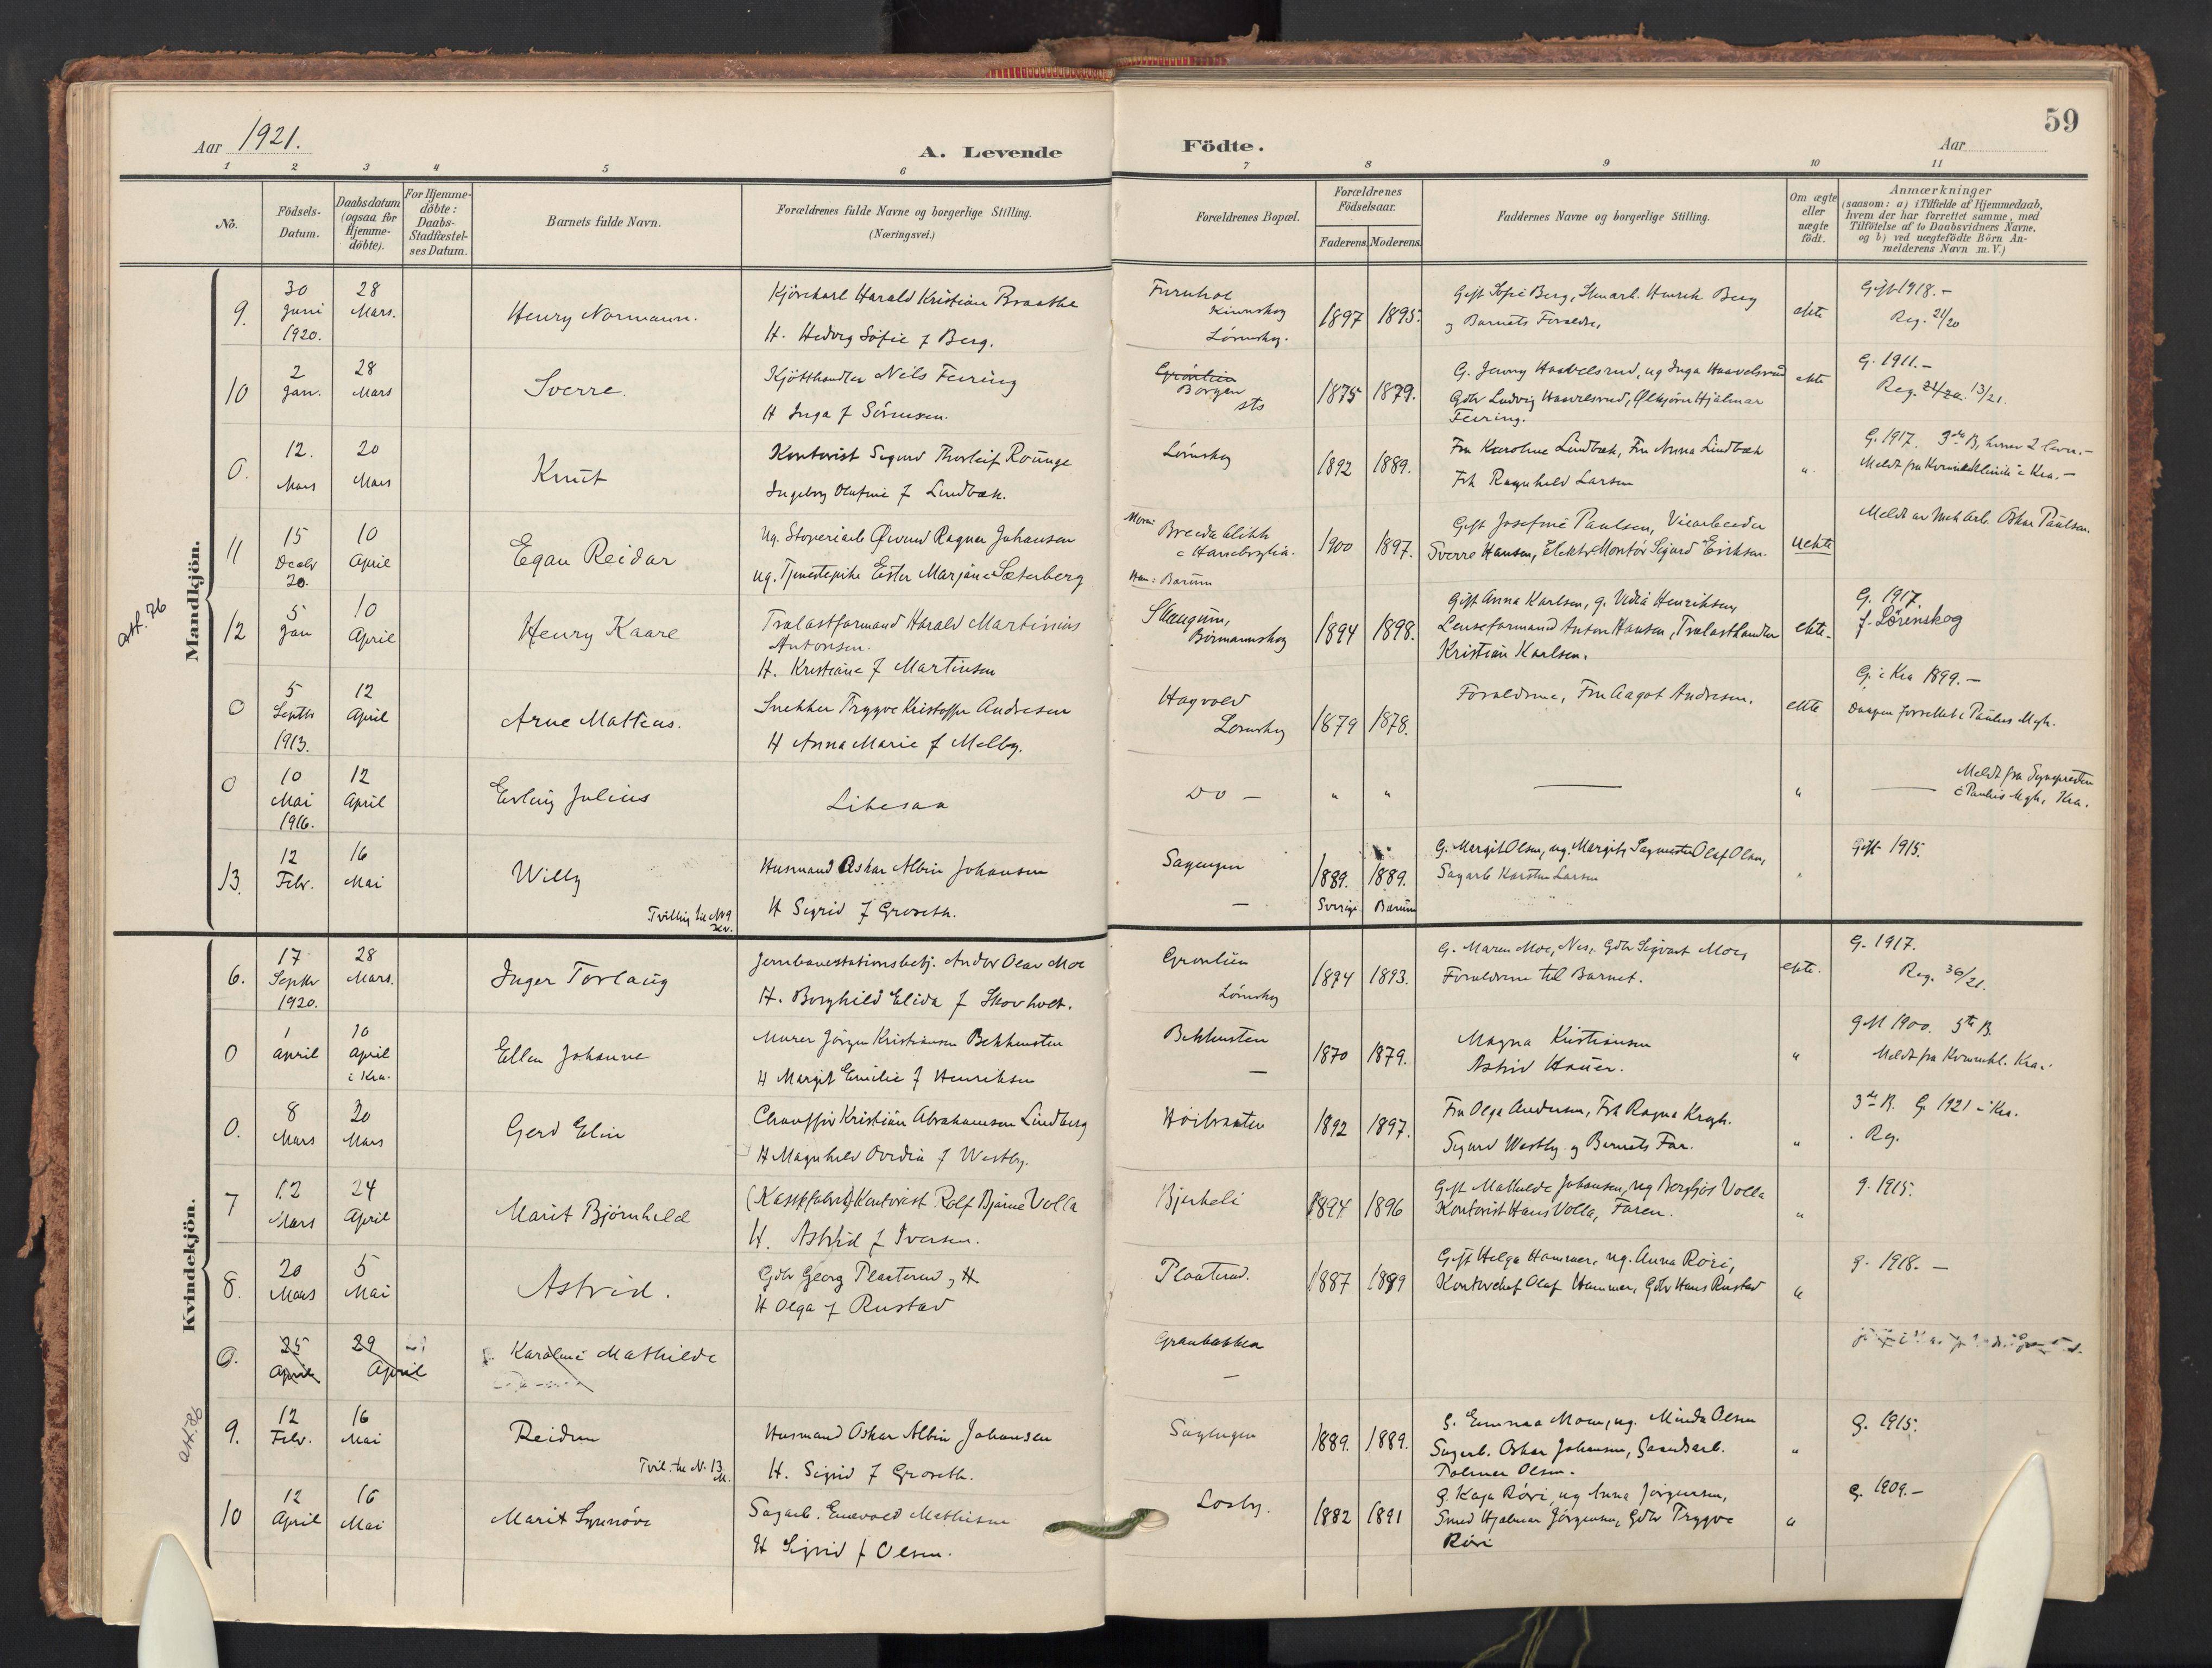 59
Aar 1921.
A. Levende
Födte.
Aar
1 2 3 4 5 6 7 8 9 10 11
No.
Födsels-
Datum.
Daabsdatum
(ogsaa for
Hjemme-
döbte).
For Hjemme-
döbte:
Daabs-
Stadfæstel-
ses Datum.
Barnets fulde Navn.
Forældrenes fulde Navne og borgerlige Stilling.
(Næringsvei.)
Forældrenes Bopæl.
Forældrenes
Födselsaar.
Faderens. Moderens.
Faddernes Navne og borgerlige Stilling.
Om ægte
eller
uægte
födt.
Anmærkninger
(saasom: a) i Tilfælde af Hjemmedaab,
hvem der har forrettet samme, med
Tilföielse af to Daabsvidners Navne,
og b) ved uægtefödte Börn An-
melderens Navn m. V.)
Mandkjön.
9.
30
Juni
1920.
28
Mars.
Henry Normann.
Kjörekarl Harald Kristian Braathe
H. Hedvig Sofie f Berg.
Furuhol
Lörenskog.
1897 1895.
Gift Sofie Berg, Stenarb. Henrik Berg
og Barnets Foreldre,
ekte
Gift 1918.-
Reg. 21/20
10
2
Jan.
28
Mars
Sverre.
Kjötthandler Nils Feiring
H Inga f Sörensen.
Grönlien
Borgen
sts
1875 1879.
G. Jenny Haavelsrud, ug Inga Haavelsrud
Gdbr Ludvig Haavelsrud, Ølkjörer Hjalmar
Feiring.
ekte
G. 1911.-
Reg. 13/21.
0.
12.
Mars
20
Mars
Knut
Kontorist Sigurd Thorleif Rounge
Ingeborg Olufine f Lindbæk.
Lörenskog
1892 1889.
Fru Karoline Lindbæk, Fru Anna Lindbæk
Frk Ragnhild Larsen
"
G. 1917. 3die B, hvorav 2 lever.-
Meldt fra Kvindeklinik i Kra.-
11
15
Decbr
20.
10
April
Egan Reidar
Ug. Stoperiarb Øivind Ragnar Johansen
ug. Tjenestepike Ester Marjane Sæterberg
Moren: Breidablikk
i Hanaborglia.
Han: Bærum
1900 1897.
Gift Josefine Paulsen, Viearbeider
Sverre Hansen, Elektr. Montör Sigurd Eriksen.
uekte
Meldt av Mek Arb. Oskar Paulsen.
att. 76
12
5
Jan
10
April
Henry Kaare
Trælastformand Harald Martinius
Antonsen.
H. Kristiane f Martinsen
Skaugum,
Börmannskog
1894 1898.
Gift Anna Karlsen, g. Vidia Henriksen,
Lenseformand Anton Hansen, Trælasthandler
Kristian Karlsen.
ekte.
G. 1917.
f. Lörenskog
0
5
Septbr
1913.
12
April
Arne Matteus.
Snekker Trygve Kristoffer Andresen
H Anna Marie f Melby.
Hagvold
Lörenskog
1879 1878.
Foreldrene, Fru Aagot Andresen.
ekte
G. i Kra 1899.-
Daapen forrettet i Paulus Mgh.
0
10
Mai
1916.
12
April
Erling Julius
Likesaa
Do -
" "
"
Meldt fra Sognepresten
i Paulus Mgh, Kra.
13.
12
Febr.
16
Mai
Willy
Tvilling til No 9
Kv.
Husmand Oskar Albin Johansen
H Sigrid f Groseth.
Sagengen
-
1889. 1889.
Sverige Bærum
G. Margit Olsen, ug. Margit, Sagmester Olaf Olsen,
Sagarb Karsten Larsen
Gift 1915.
Kvindekjön.
6.
17
Septbr
1920.
28
Mars.
Inger Torlaug
Jernbanestationsbetj. Andor Olav Moe
H. Borghild Elida f Skovholt.
Grönlien
Lörenskog
1894 1893.
G. Maren Moe, Nes, Gdbr Sigvart Moe,
Foreldrene til Barnet.
ekte.
G. 1917.
Reg. 36/21.
0
1
April
10
April
i Kra.
Ellen Johanne
Murer Jörgen Kristiansen Bekkensten
H Margit Emilie f Henriksen
Bekkensten
-
1870 1879.
Magna Kristiansen
Astrid Hauer.
"
Gift 1900. 5te B.
Meldt fra Kvinnekl. Kra.
0.
8
Mars
20
Mars
Gerd Elin
Chauffør Kristian Abrahamsen Lindberg
H Magnhild Ovidia f Westby.
Höibraaten
1892 1897.
Fru Olga Andersen, Frk Ragna Krogh.
Sigurd Westby og Barnets Far.
"
3die B. G 1921 i Kra.
Reg.
7
12
Mars
24
April
Marit Björnhild
Kontorist Rolf Bjarne Volla
H. Astrid f Iversen.
Bjerkeli
1894 1896
Gift Mathilde Johansen, ug Bergljot Volla
Kontorist Hans Volla, Faren.
"
g. 1915.
8.
20
Mars
5
Mai
Astrid.
Gdbr Georg Plaaterud og H
H Olga f Rustad
Plaaterud.
1887 1889
Gift Helga Hammer, ug. Anna Röiri,
Kontorchef Olaf Hammer, Gdbr Hans Rustad
"
g. 1918.-
0.
25
April
29
April
Karoline Mathilde
Granbakken
-
att. 86
9.
12
Febr.
16
Mai
Reidun
Tvil. til No 13
M.
Husmand Oskar Albin Johansen
H. Sigrid f Groseth.
Sagengen
1889. 1889.
G. Emma Moen, ug. Minda Olsen
Sagarb. Oskar Johansen, Gaardsarb.
Palmer Olsen.
"
G. 1915.
10
12
April
16
Mai
Marit Synnöve
Sagarb. Enevold Mathisen
H Sigrid f Olsen.
Losby.
1882 1891
G. Kaja Röiri, ug Anna Jörgensen,
Smed Hjalmar Jörgensen, Gdbr Trygve
Röiri
"
G. 1909.-